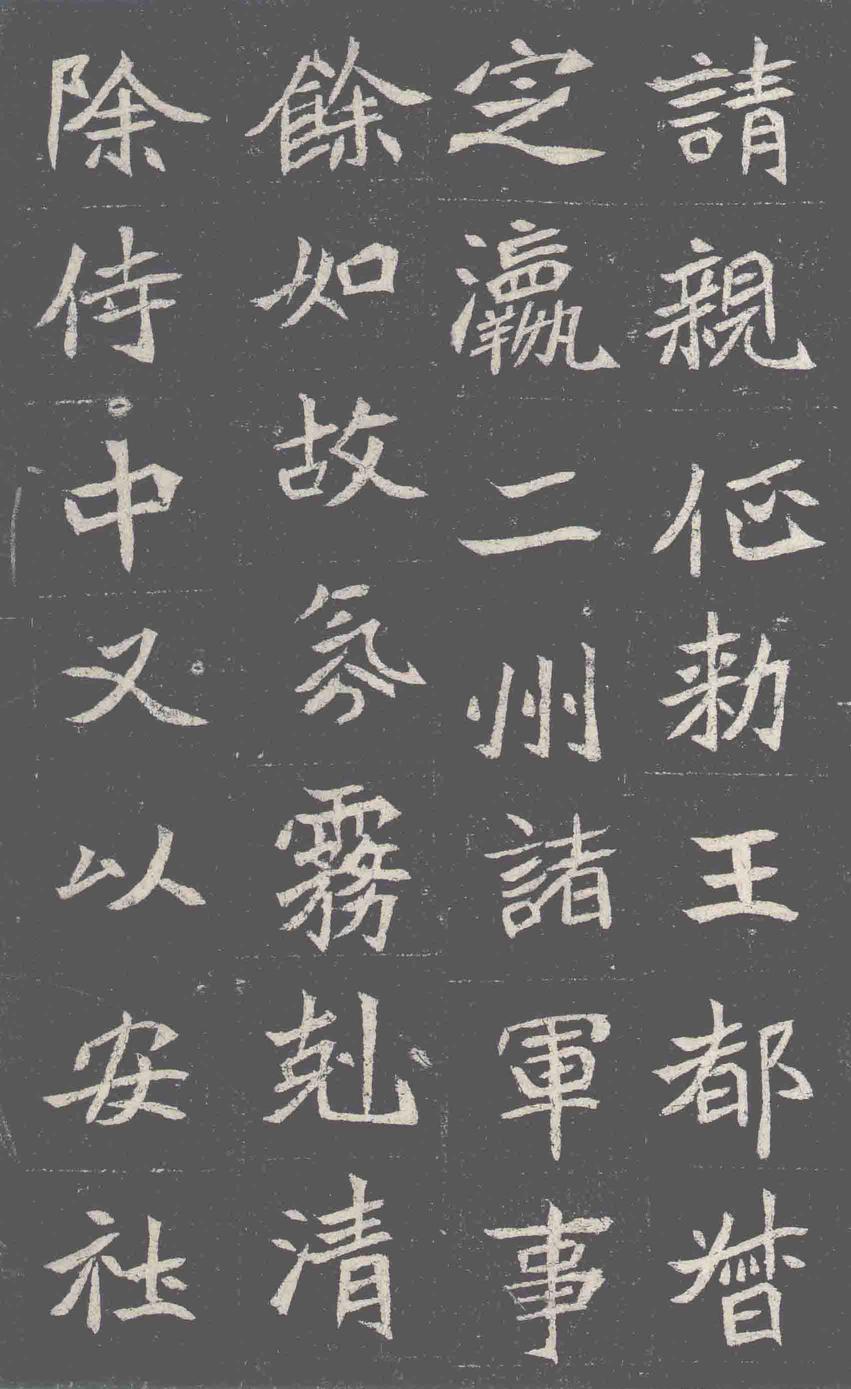 請親征勑王都督
定瀛二州諸軍事
餘如故氛霧剋清
除侍中又以安社